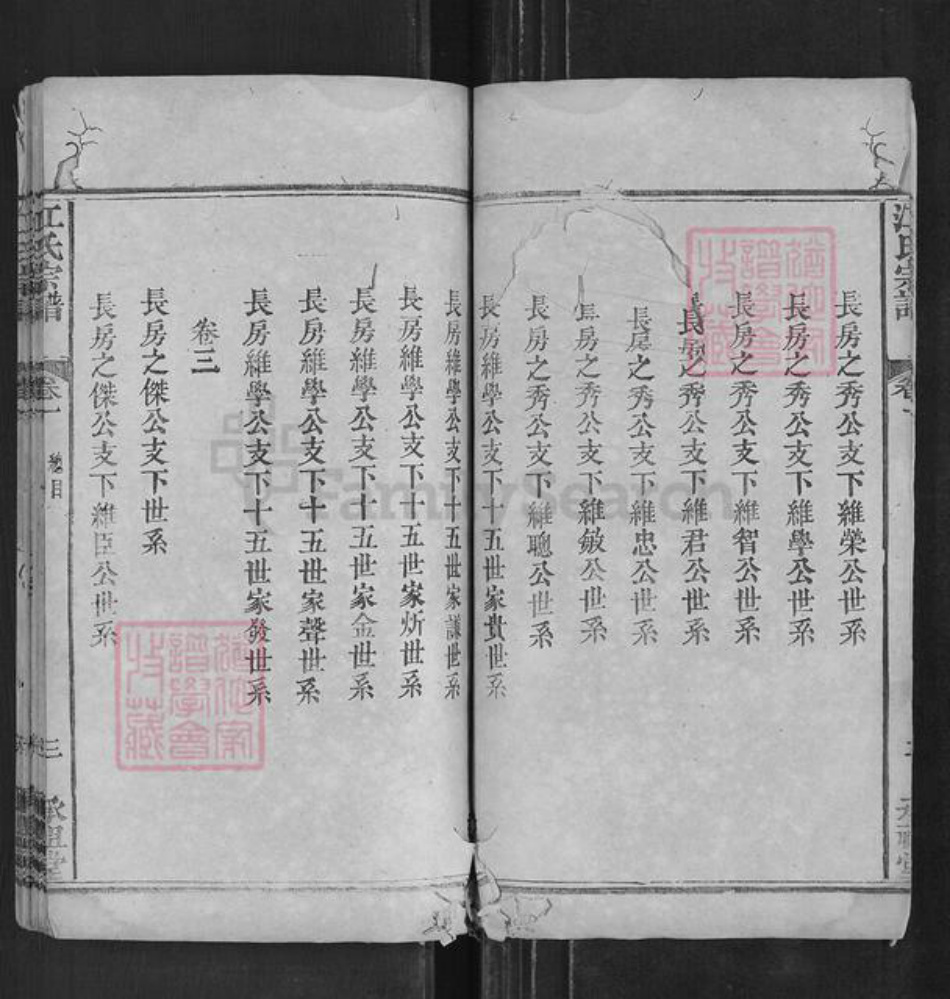 江氏宗譜
卷一
長房之秀公支下維榮公世系
長房之秀公支下維學公世系
長房之秀公支下維智公世系
長房之秀公支下維君公世系
長房之秀公支下維忠公世系
長房之秀公支下維敏公世系
長房之秀公支下維聰公世系
長房維學公支下十五世家貴世系
長房維學公支下十五世家謙世系
長房維學公支下十五世家炘世系
長房維學公支下十五世家金世系
長房維學公支下十五世家聲世系
長房維學公支下十五世家發世系
卷三
長房之傑公支下世系
長房之傑公支下維臣公世系
江氏宗譜
卷一
總目
三
FamilySearch